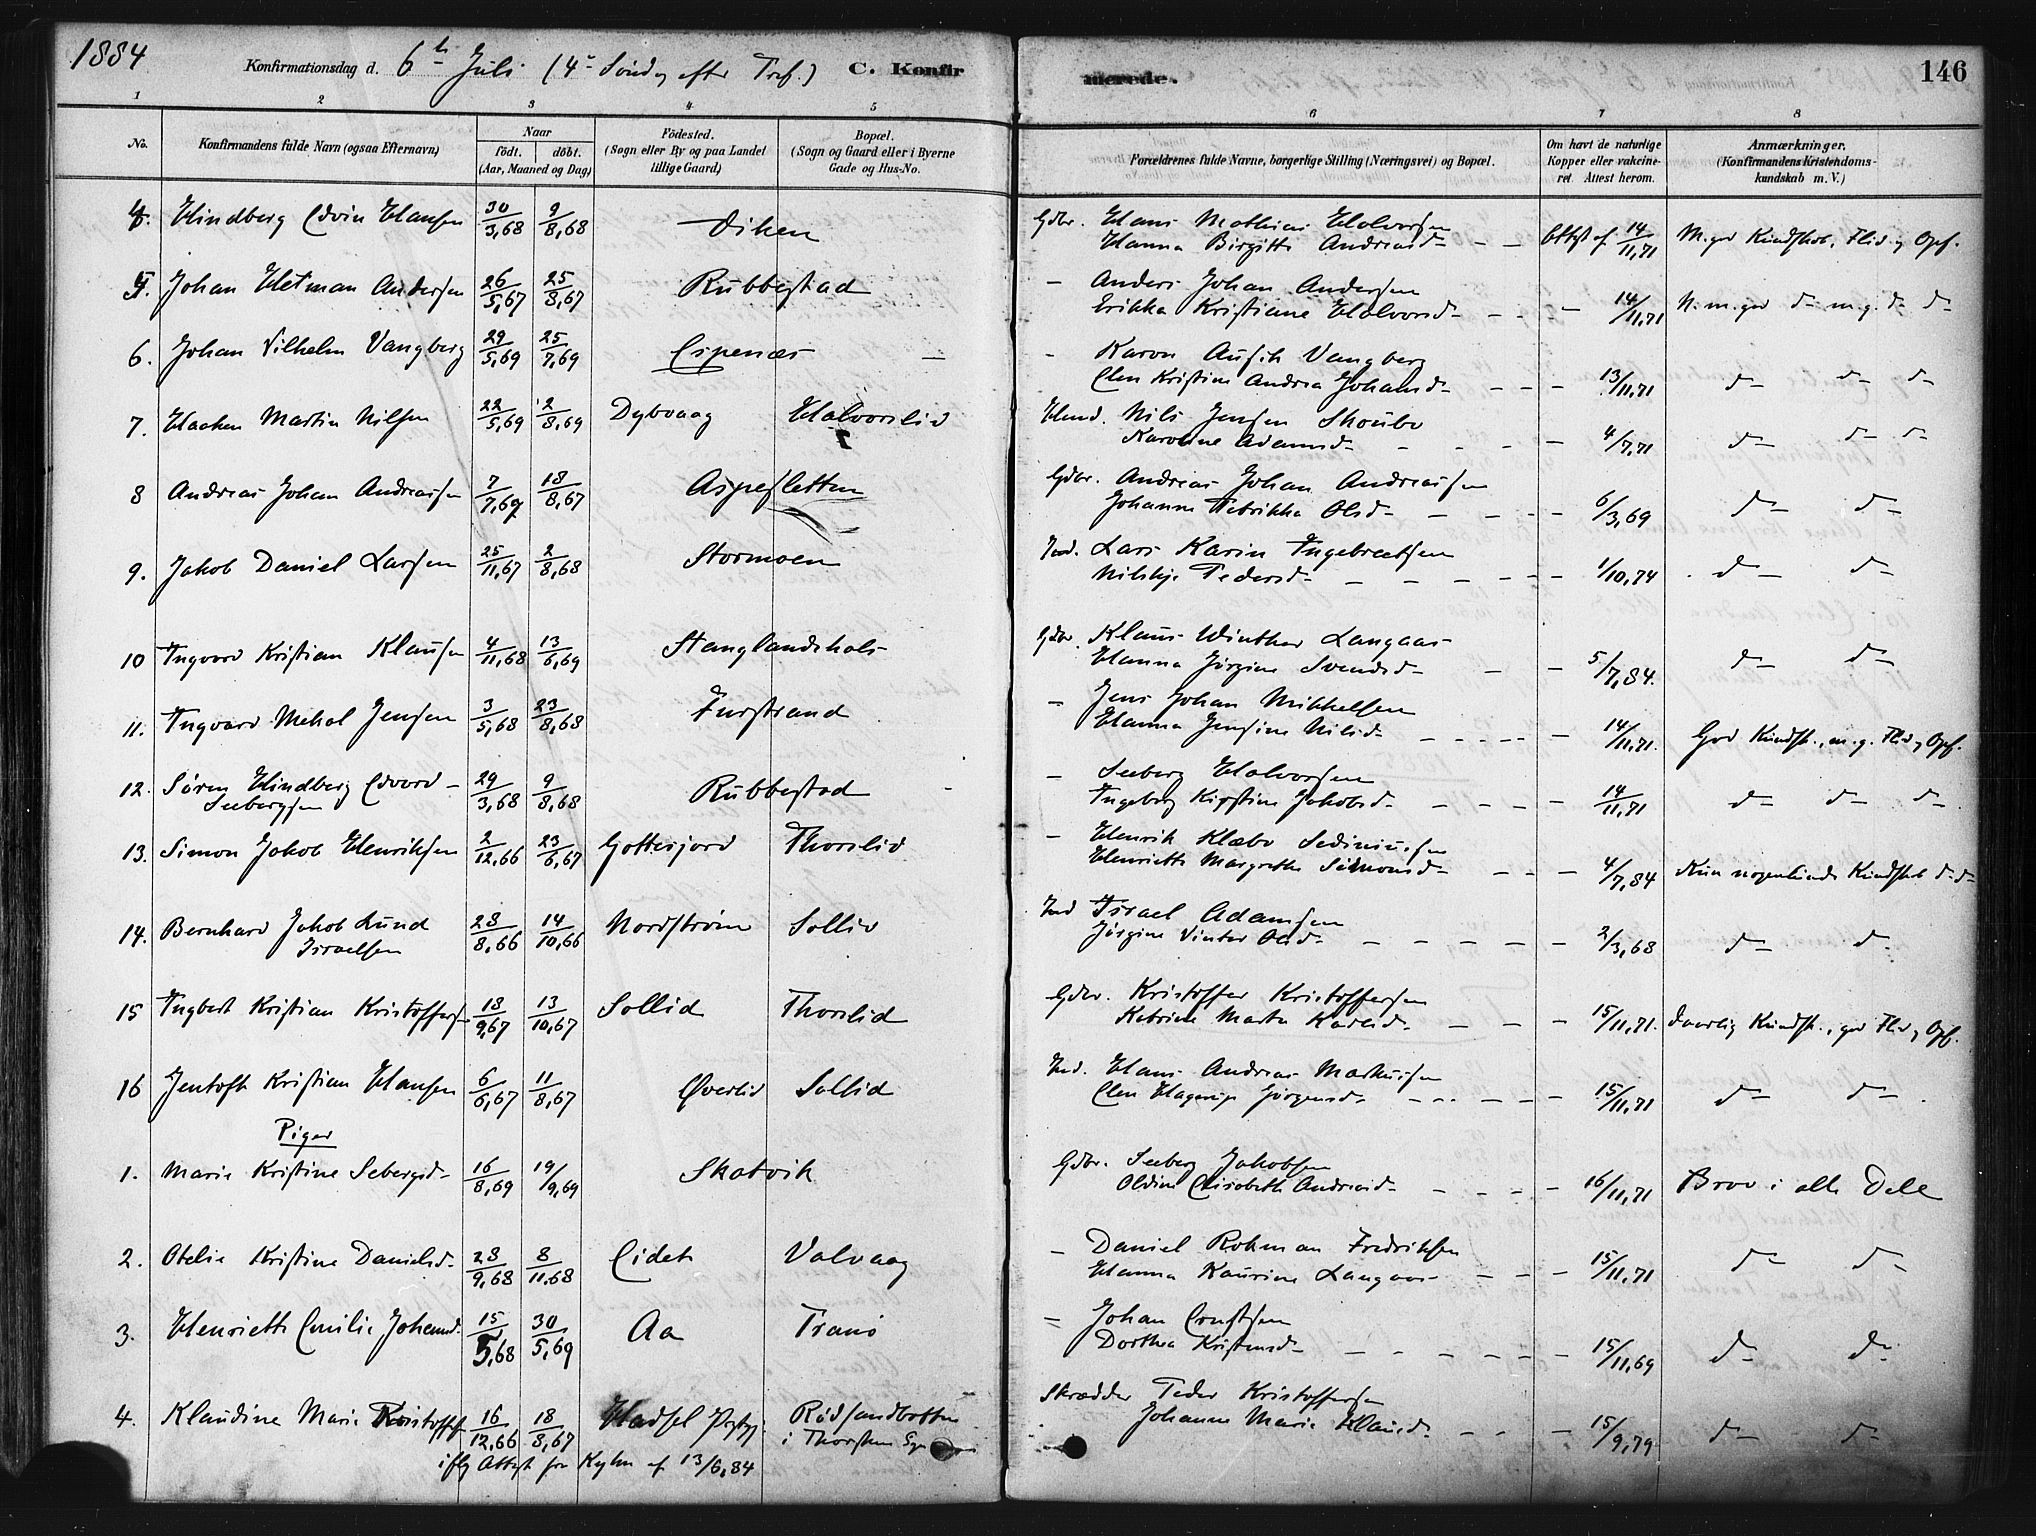 1884
Konfirmationsdag d. 6te Juli (4de Søndag efter Tref.) C. Konfirmerede. 146
1 2 3 4 5 6 7 8
No. Konfirmandens fulde Navn (ogsaa Efternavn) Naar født. døbt. (Aar, Maaned og Dag) Fødested. (Sogn eller By og paa Landet tillige Gaard) Bopæl. (Sogn og Gaard eller i Byerne Gade og Hus-No. Forældrenes fulde Navne, borgerlige Stilling (Næringsvei) og Bopæl. Om havt de naturlige Kopper eller vakcineret. Attest herom. Anmærkninger. (Konfirmandens Kristendomskundskab m. V.)
4. Hindberg Edvin Hansen 30/3,68 9/8,68 Viken Gdbr. Hans Mathias Halvorsen
Hanna Birgitte Andreasd. - - Attest af 14/11,71 M. god Kundskab, Flid og Opf.
5. Johan Hetman Andersen 26/5,67 25/8,67 Rubbestad - Anders Johan Andersen
Erikka Kristiane Halvorsd. - - - 14/11,71 N. m. god d- m. g. d- d-
6. Johan Vilhelm Vangberg 29/5,69 25/7,69 Espenæs - - Karon Vangberg
Elen Kristine Andrea Johansd. - - - 13/11,71 d- d- d-
7. Haaken Martin Nilsen 22/5,69 2/8,69 Dybvaag Halvorslid Huusmd. Nils Jensen Skoubo
Karoline Adamsd. - - - 4/7,71 d- d- d-
8 Andreas Johan Andreassen 7/7,67 18/8,67 Aspesletten Gdbr. Andreas Johan Andreassen
Johanna Fredrikka Olsd. - - - 6/3,69 d- d-
9. Jakob Daniel Larsen 25/11,67 2/8,68 Stormoen Ind. Lars Karin Ingebretsen
Pedersd. - - - - - 1/10,74 d- d-
10 Ingvard Kristian Klausen 4/11,68 13/6,69 Stanglandshals Gdbr. Klaus Winther Langaas
Hanna Jørgine Svendsd. - - 5/7,84. d- d-
11. Ingvard Mekal Jensen 3/5,68 23/8,68 Furstrand - Jens Johan Mikkelsen
Hanna Jensine Nilsd. - - - - - 14/11,71. God Kundsk., m. g. Flid og Opf.
12. Søren Hindberg Edvard 29/3,68 9/8,68 Rubbestad - Seeberg Halvorsen
Seebergsen Ingeborg Kirstine Jakobsd. - - - - 14/11,71 d- d- d-
13. Simon Jakob Henriksen 2/12,66 23/6,67 Gottesjord Thorslid - Henrik Klæbo Sediniussen
Henriette Margrethe Simonsd. - - - 4/7,84 Kun nogenlunde Kundskab d-d-
14. Bernhard Jakob Lund 28/8,66 14/10,66 Nordstrøm Sollid Ind Israel Adamsen
Israelsen Jørgine Vinter Olsd. - - - - - 2/3,68 d- d-
15 Ingbert Kristian Kristoffersen 18/9,67 13/10,67 Sollid Thorslid Gdbr. Kristoffer Kristoffersen
Katrine Marta Karlsd. - - - 15/11,71. daarlig Kundsk., god Flid og Opf.
16 Jentoft Kristian Hansen 6/6,67 11/8,67 Øverlid Sollid Ind. Hans Andreas Markussen
Elen Hagerup Jørgensd. - - - - - 15/11,71 d- d-
Piger
1. Marie Kristine Sebergsd. 16/8,69 19/9,69 Skatvik Gdbr. Seeberg Jakobsen
Oldine Elisabeth Andreasd. - - - - 16/11,71 Brav i alle Dele
2. Otelie Kristine Danielsd. 28/9,68 8/11,68 Eidet Valvaag - Daniel Rohman Fredriksen
Hanna Kaurine Langaas - - - 15/11,71 d- d-
3. Henriette Emilie Johansd. 15/5,68 30/5,69 Aa Tranø - Johan Ernstsen
Dorthea Kristensd. - - - - - 15/11,69 d- d-
4. Klaudine Marie Kristoffs 16/12,66 18/8,67 Hadsel Prgj. Rødsandbotten Skrædder Peder Kristoffersen
i Thorsken Johanna Marie Hansd. - - - 15/9,79 d- d-
iflg Attest fra af 13/6,84